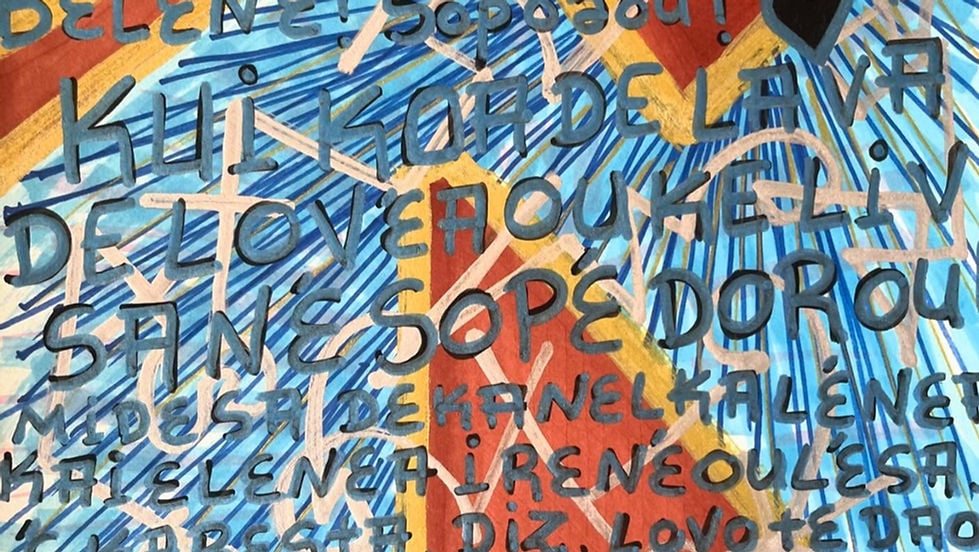 DELENE! Sopoaou!
KUi KOA DE LAVA
DELOVÉA OU KE LiV
SANÉ SOPÉ DOROU
MiDESA DEKANEL KALÉNE
KAiELENEA iRENÉOULÉSA
KARESTA DiZ LOVOTE DAO